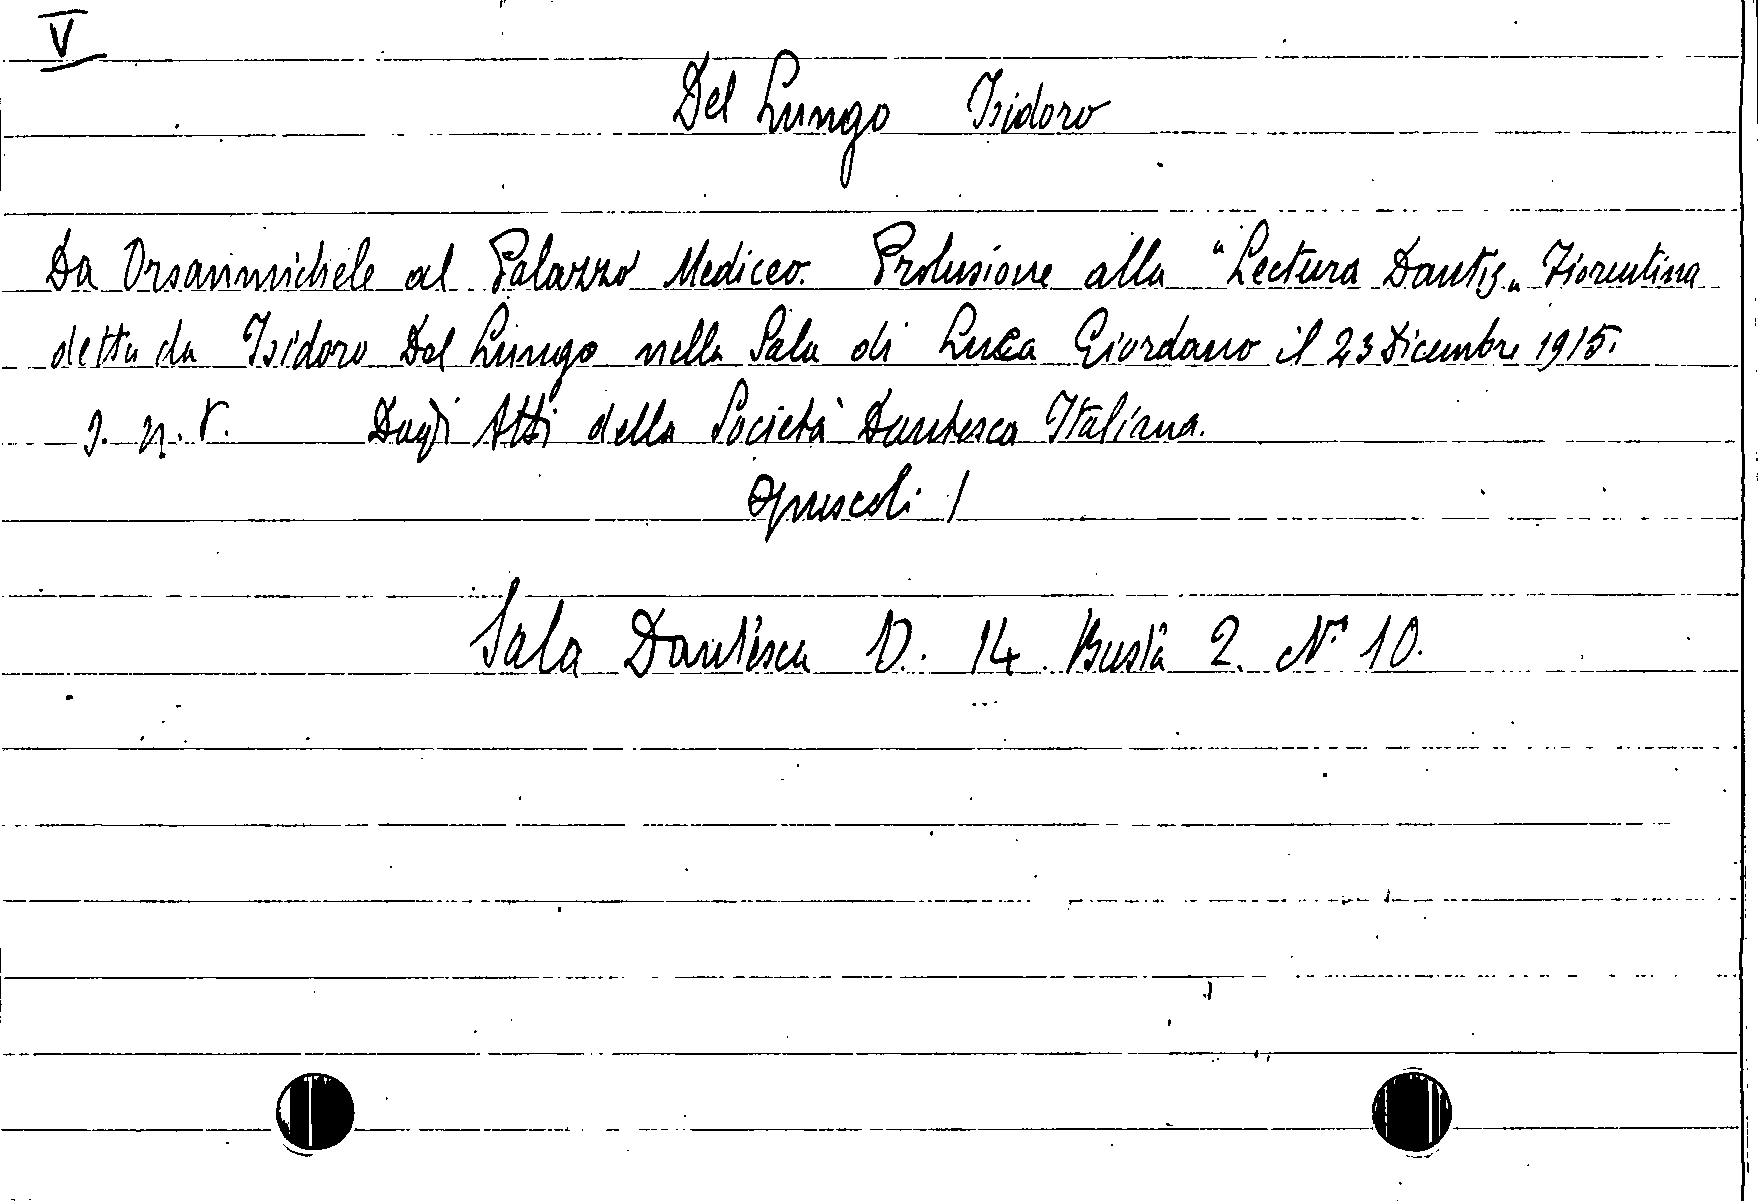 V
Del Lungo Isidoro
Da Orsanmichele al Palazzo Mediceo. Prolusione alla "Lectura Dantis„ Fiorentina
detta da Isidoro Del Lungo nella Sala di Luca Giordano il 23 Dicembre 1915.
s. n. t. Dagli Atti della Società Dantesca Italiana.
Opuscoli 1
Sala Dantesca D. 14 Busta 2. N° 10.